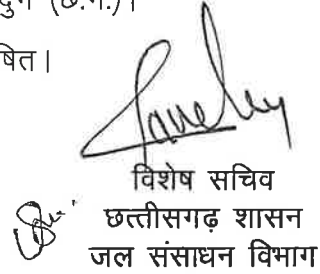 दुर्ग (छ.ग.)।
षित।
विशेष सचिव
छत्तीसगढ़ शासन
जल संसाधन विभाग